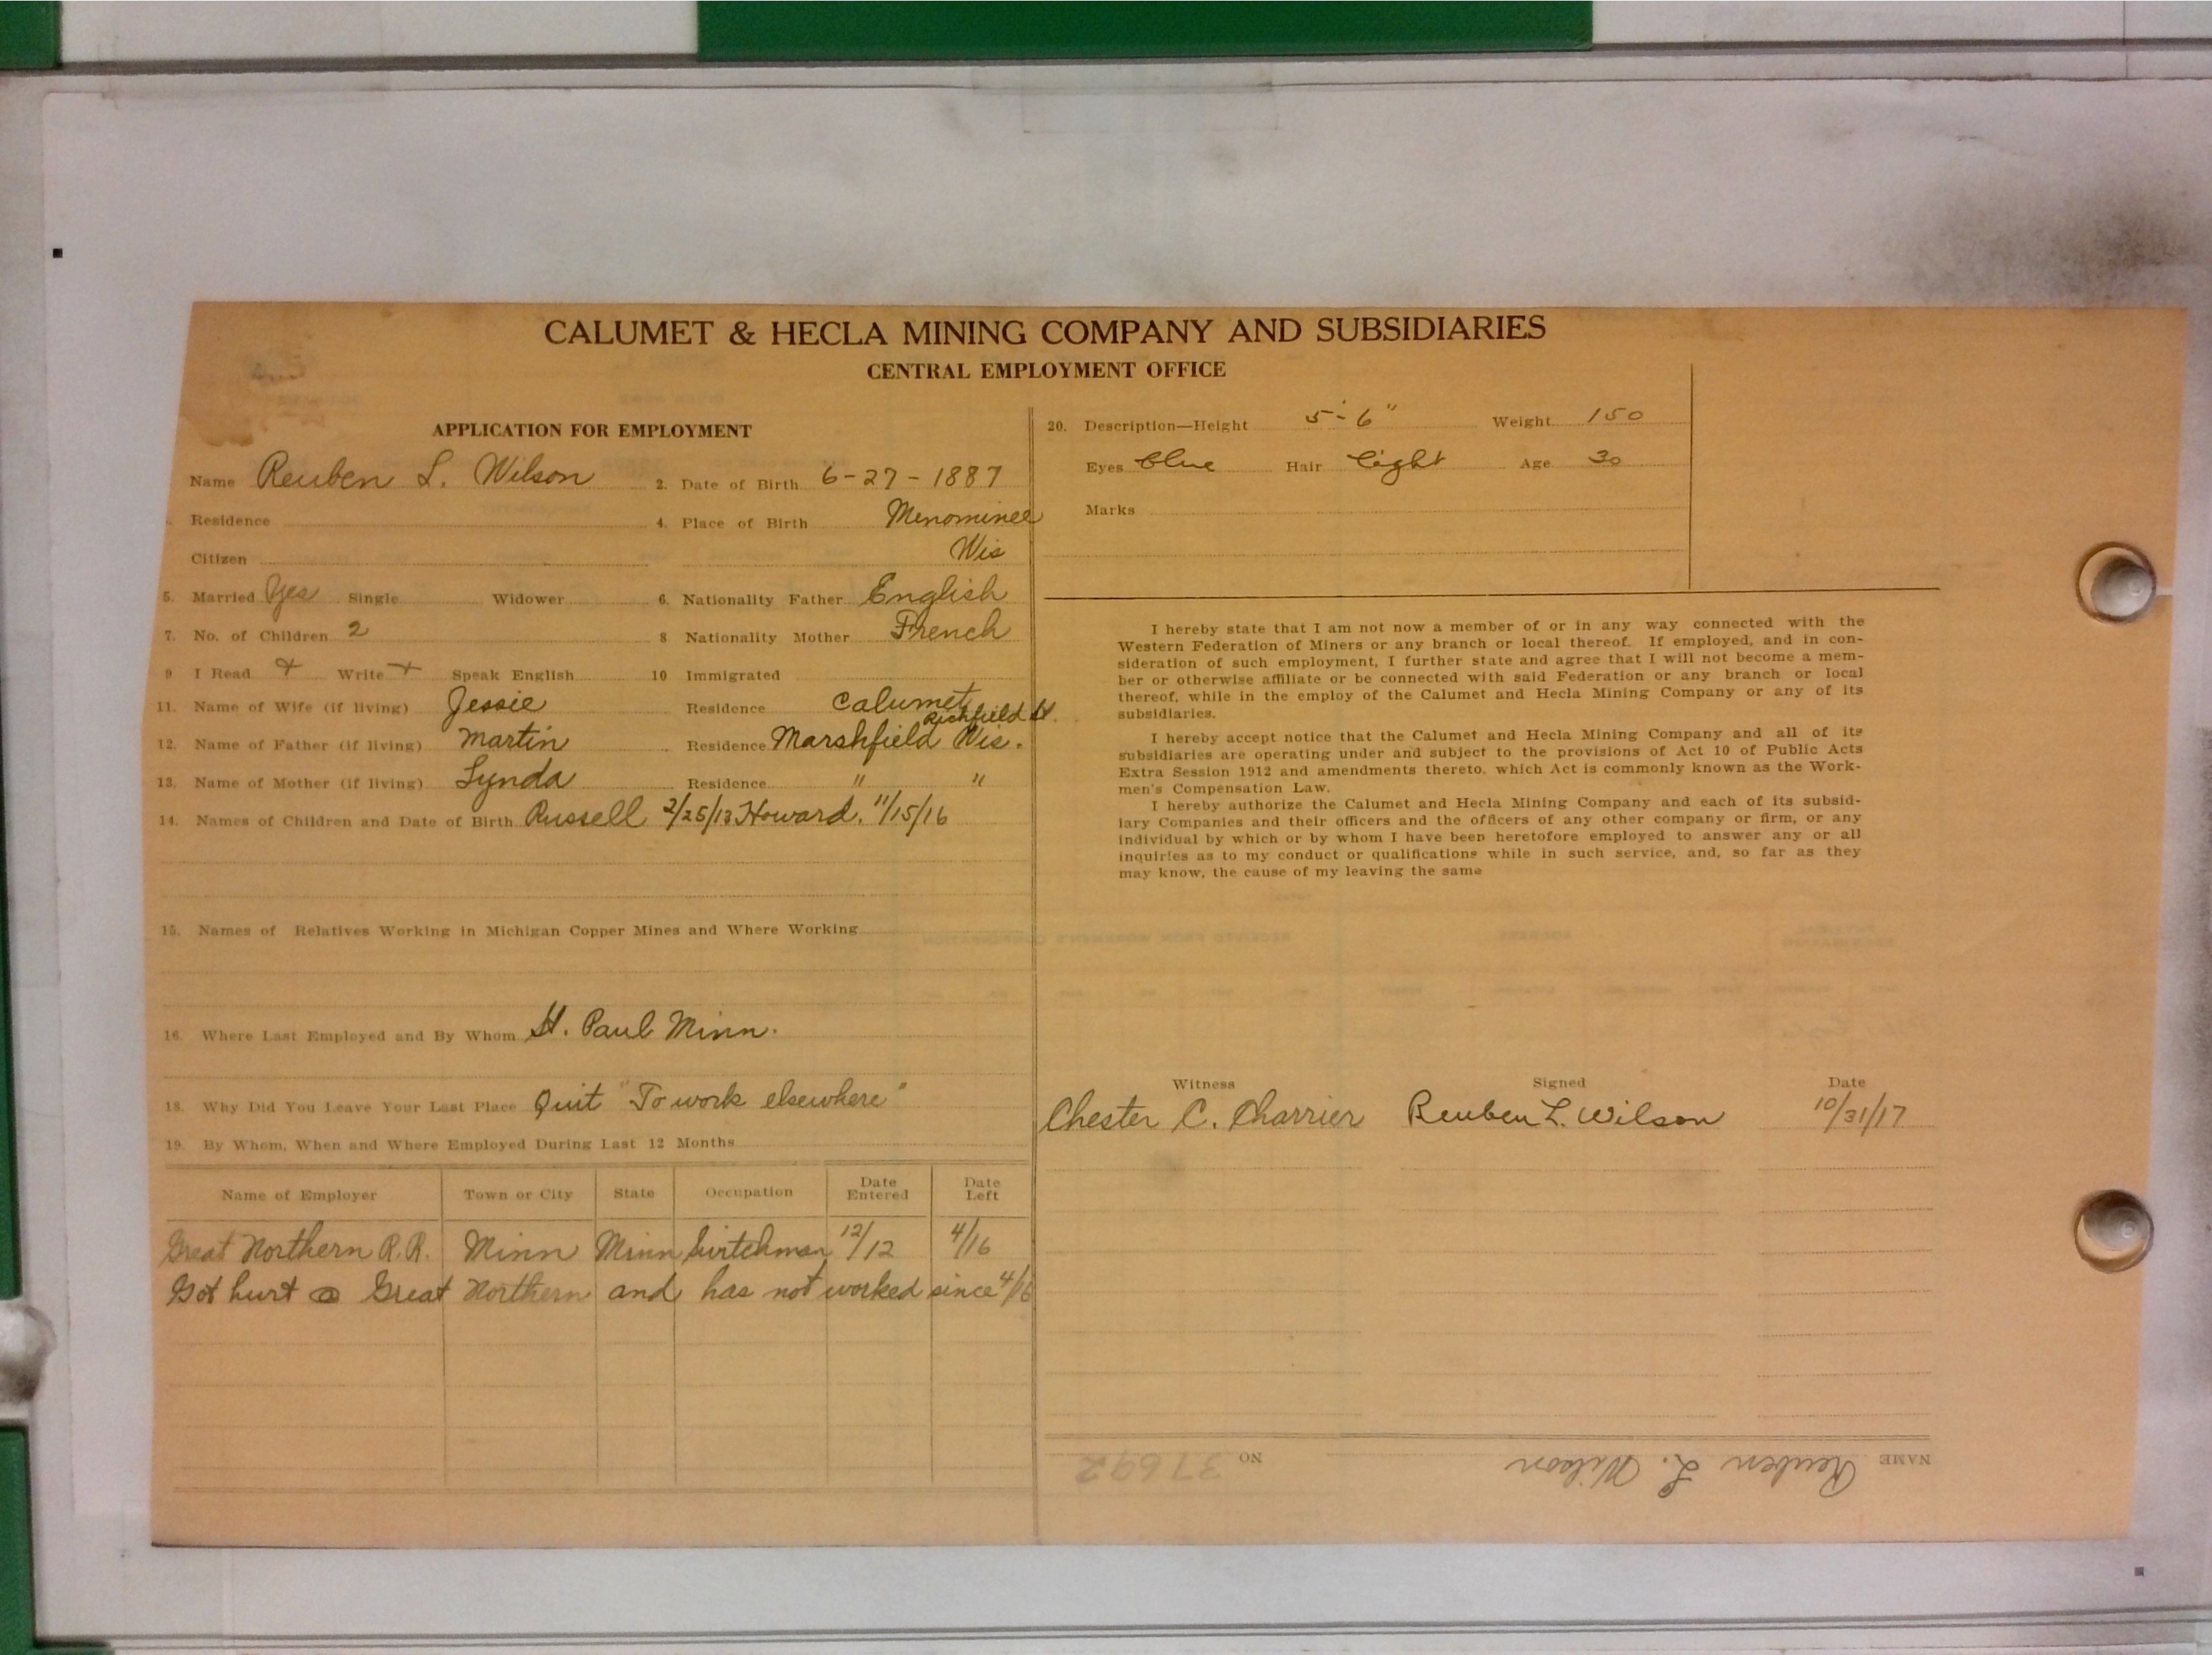 CALUMET & HECLA MINING COMPANY AND SUBSIDIARIES
CENTRAL EMPLOYMENT OFFICE
APPLICATION FOR EMPLOYMENT
Name Reuben L. Wilson 2. Date of Birth 6-27-1887
Residence 4. Place of Birth Menominee
Citizen Wis
5. Married Yes Single Widower 6. Nationality Father English
7. No. of Children 2 8 Nationality Mother French
9 I Read + Write + Speak English 10 Immigrated
11. Name of Wife (if living) Jessie Residence Calumet
Richfield St.
12. Name of Father (if living) Martin Residence Marshfield Wis.
13. Name of Mother (if living) Lynda Residence " "
14. Names of Children and Date of Birth Russell 2/25/13 Howard. 11/15/16
15. Names of Relatives Working in Michigan Copper Mines and Where Working
16. Where Last Employed and By Whom St. Paul Minn.
18. Why Did You Leave Your Last Place Quit "To work elsewhere"
19. By Whom, When and Where Employed During Last 12 Months
Name of Employer Town or City State Occupation Date Entered Date Left
Great Northern R.R. Minn Minn Switchman 12/12 4/16
Got hurt Great Northern and has not worked since 4/16
20. Description—Height 5'-6" Weight 150
Eyes blue Hair light Age 30
Marks
I hereby state that I am not now a member of or in any way connected with the
Western Federation of Miners or any branch or local thereof. If employed, and in con-
sideration of such employment, I further state and agree that I will not become a mem-
ber or otherwise affiliate or be connected with said Federation or any branch or local
thereof, while in the employ of the Calumet and Hecla Mining Company or any of its
subsidiaries.
I hereby accept notice that the Calumet and Hecla Mining Company and all of its
subsidiaries are operating under and subject to the provisions of Act 10 of Public Acts
Extra Session 1912 and amendments thereto, which Act is commonly known as the Work-
men's Compensation Law.
I hereby authorize the Calumet and Hecla Mining Company and each of its subsid-
iary Companies and their officers and the officers of any other company or firm, or any
individual by which or by whom I have been heretofore employed to answer any or all
inquiries as to my conduct or qualifications while in such service, and, so far as they
may know, the cause of my leaving the same
Witness Signed Date
Chester C. Charrier Reuben L. Wilson 10/31/17
NAME Reuben L. Wilson NO 37692